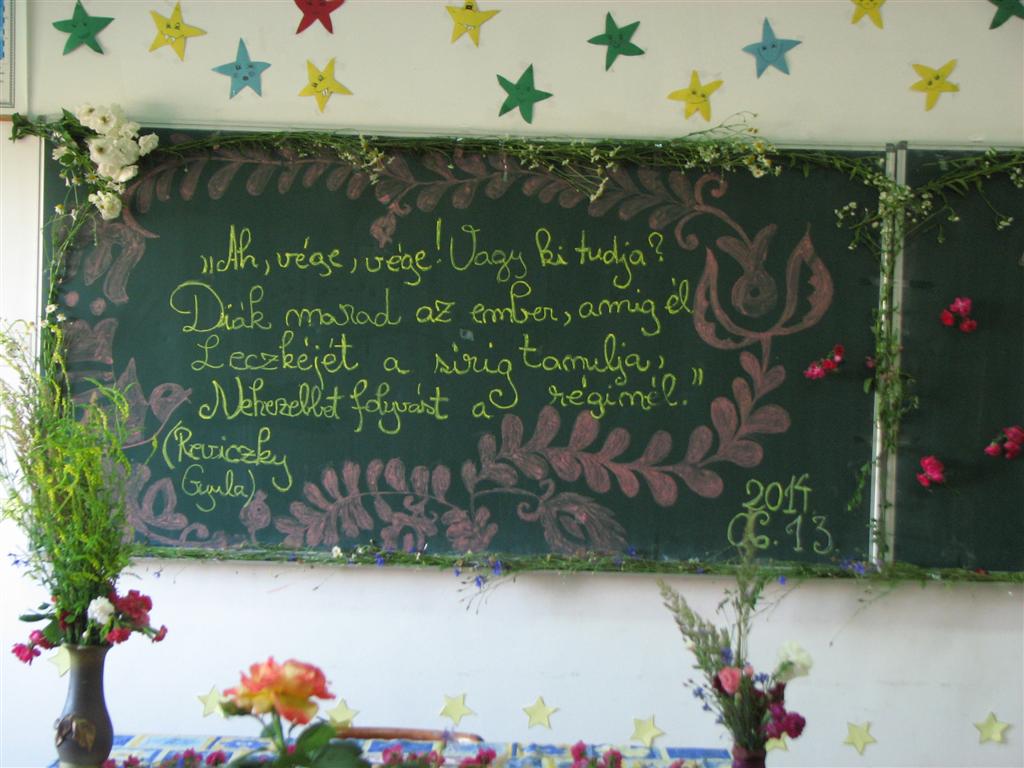 „Ah, vége, vége! Vagy ki tudja?
Diák marad az ember, amig él
Leczkéjét a sirig tanulja,
Nehezebbet folyvást a réginél."
(Reviczky
Gyula)
2014.
06.13.